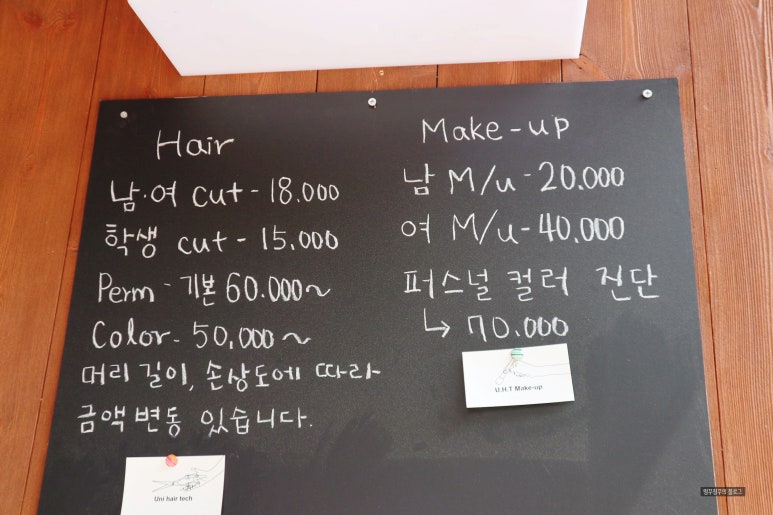 Hair
남·여 cut - 18.000
학생 cut - 15,000
Perm - 기본 60.000~
Color - 50,000~
머리 길이, 손상도에 따라
금액 변동 있습니다.
Uni hair tech
Make-up
남 M/u - 20.000
여 M/u - 40,000
퍼스널 컬러 진단
↳ 70.000
U.H.T Make-up